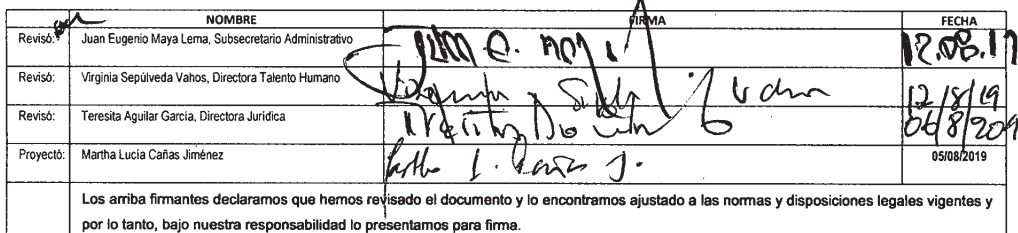 NOMBRE FIRMA FECHA
Revisó: Juan Eugenio Maya Lema, Subsecretario Administrativo
Revisó: Virginia Sepúlveda Vahos, Directora Talento Humano 12/8/19
Revisó: Teresita Aguilar García, Directora Jurídica 06/8/2019
Proyectó: Martha Lucía Cañas Jiménez 05/08/2019
Los arriba firmantes declaramos que hemos revisado el documento y lo encontramos ajustado a las normas y disposiciones legales vigentes y
por lo tanto, bajo nuestra responsabilidad lo presentamos para firma.